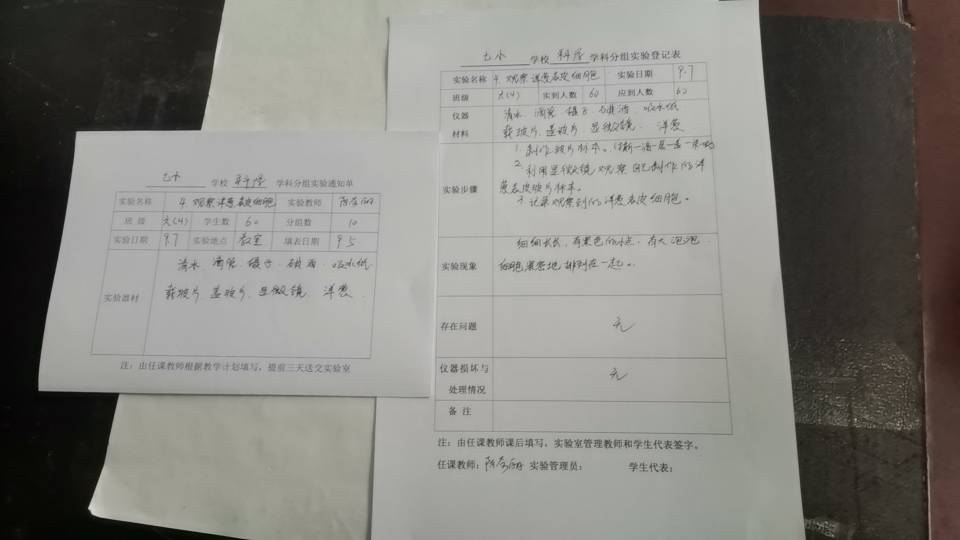 七小 学校 科学 学科分组实验通知单
实验名称 4 观察洋葱表皮细胞 实验教师
班 级 六(4) 学生数 60 分组数 10
实验日期 9.7 实验地点 教室 填表日期 9.5
清水 滴管 镊子 碘酒 吸水纸
实验器材 载玻片 盖玻片 显微镜 洋葱
注：由任课教师根据教学计划填写，提前三天送交实验室
七小 学校 科学 学科分组实验登记表
实验名称 4 观察洋葱表皮细胞 实验日期 9.7
班级 六(4) 实到人数 60 应到人数 60
仪器 清水 滴管 镊子 碘酒 吸水纸
材料 载玻片 盖玻片 显微镜 洋葱
1. 制作玻片标本。
2. 利用显微镜观察自己制作的洋
实验步骤 葱表皮玻片标本。
3. 记录观察到的洋葱表皮细胞。
细细长长，有黑色的小点，有大泡泡，
实验现象 细胞紧密地排列在一起。
存在问题 无
仪器损坏与 无
处理情况
备 注
注：由任课教师课后填写，实验室管理教师和学生代表签字。
任课教师： 实验管理员： 学生代表：